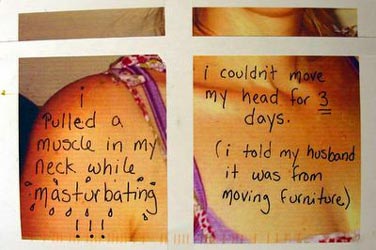 i
pulled a
muscle in my
neck while
masturbating
!!!
i couldn't move
my head for 3
days.
(i told my husband
it was from
moving furniture)